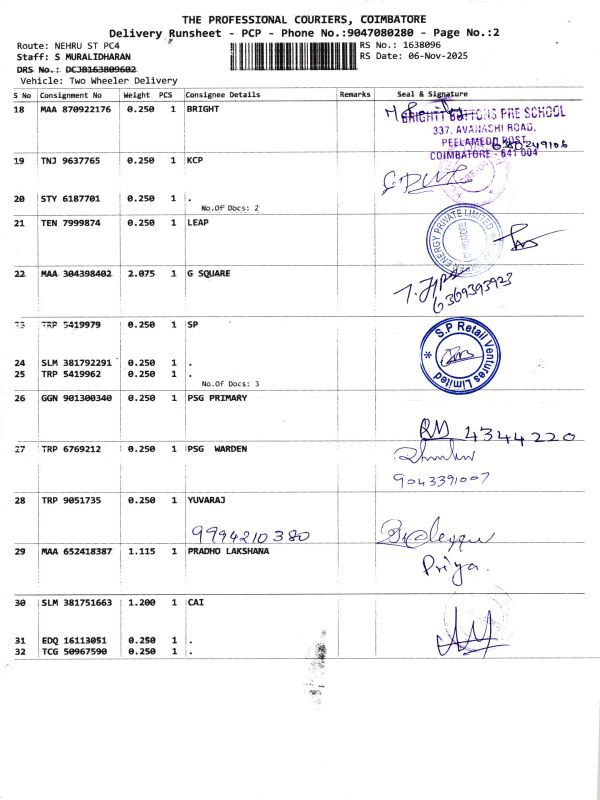 THE PROFESSIONAL COURIERS, COIMBATORE
Delivery Runsheet - PCP - Phone No.:9047080280 - Page No.:2
Route: NEHRU ST PC4
RS No.: 1638096
Staff: S MURALIDHARAN
RS Date: 06-Nov-2025
DRS No.: DCJB163809602
Vehicle: Two Wheeler Delivery
S No Consignment No Weight PCS Consignee Details Remarks Seal & Signature
18 MAA 870922176 0.250 1 BRIGHT
BRIGHTT BOTTONS PRE SCHOOL
337, AVANASHI ROAD,
PEELAMEDU POST
COIMBATORE - 641 004
19 TNJ 9637765 0.250 1 KCP
20 STY 6187701 0.250 1 .
No.Of Docs: 2
21 TEN 7999874 0.250 1 LEAP
ENERGY PRIVATE LIMITED
COIMBATORE
22 MAA 304398402 2.075 1 G SQUARE
6369393923
23 TRP 5419979 0.250 1 SP
S.P Retail Ventures Limited
24 SLM 381792291 0.250 1 .
25 TRP 5419962 0.250 1 .
No.Of Docs: 3
26 GGN 901300340 0.250 1 PSG PRIMARY
4344220
27 TRP 6769212 0.250 1 PSG WARDEN
9043391007
28 TRP 9051735 0.250 1 YUVARAJ
9994210380
29 MAA 652418387 1.115 1 PRADHO LAKSHANA
Priya.
30 SLM 381751663 1.200 1 CAI
31 EDQ 16113051 0.250 1 .
32 TCG 50967590 0.250 1 .